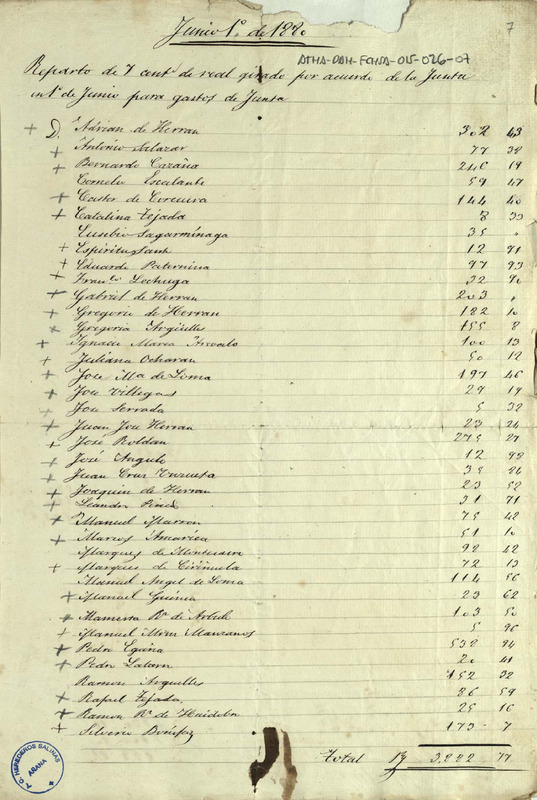 Junio 1º de 1880
7
ATHA-DAH-FCHSA-015-026-07
Reparto de 7 centˢ de real girado por acuerdo de la Junta
en 1º de Junio para gastos de Junta
+ D. Adrian de Herran 302 43
+ Antonio Salazar 77 38
+ Bernardo Cazaña 246 19
Cornelio Escalante 59 47
+ Castor de Corcuera 144 40
+ Catalina Tejada 8 33
Eusebio Sagarmínaga 35 "
+ Espiritu Santo 12 71
+ Eduardo Paternina 97 93
+ Franᶜᵒ Lechuga 32 90
+ Gabriel de Herran 203 "
+ Gregorio de Herran 182 10
+ Gregoria Argüelles 155 8
+ Ignacio Maria Arevalo 100 13
+ Juliana Ocharan 50 12
+ Jose Mª de Loma 197 46
+ Jose Villegas 29 19
Jose Serrada 5 32
+ Juan Jose Herran 23 24
+ José Roldan 275 27
+ José Angulo 12 98
+ Juan Cruz Unzueta 35 86
+ Joaquin de Herran 23 52
+ Leandro 31 71
+ Manuel Marron 75 42
+ Marcos Amarica 51 10
Marques de Montesacro 92 42
+ Marques de Cirinuela 72 13
Manuel Angel de Loma 114 56
+ Manuel Guinea 23 62
+ Mamerta Rˢ de 103 50
+ Manuel Manzanos 5 96
+ Pedro Egaña 532 94
+ Pedro 20 41
Ramon Arguelles 152 32
+ Rafael Tejada 86 59
+ Ramon Rˢ de 25 16
+ Silverio Bonifaz 173 7
Total 3,222 77
A. C. HEREDEROS SALINAS
AÑANA